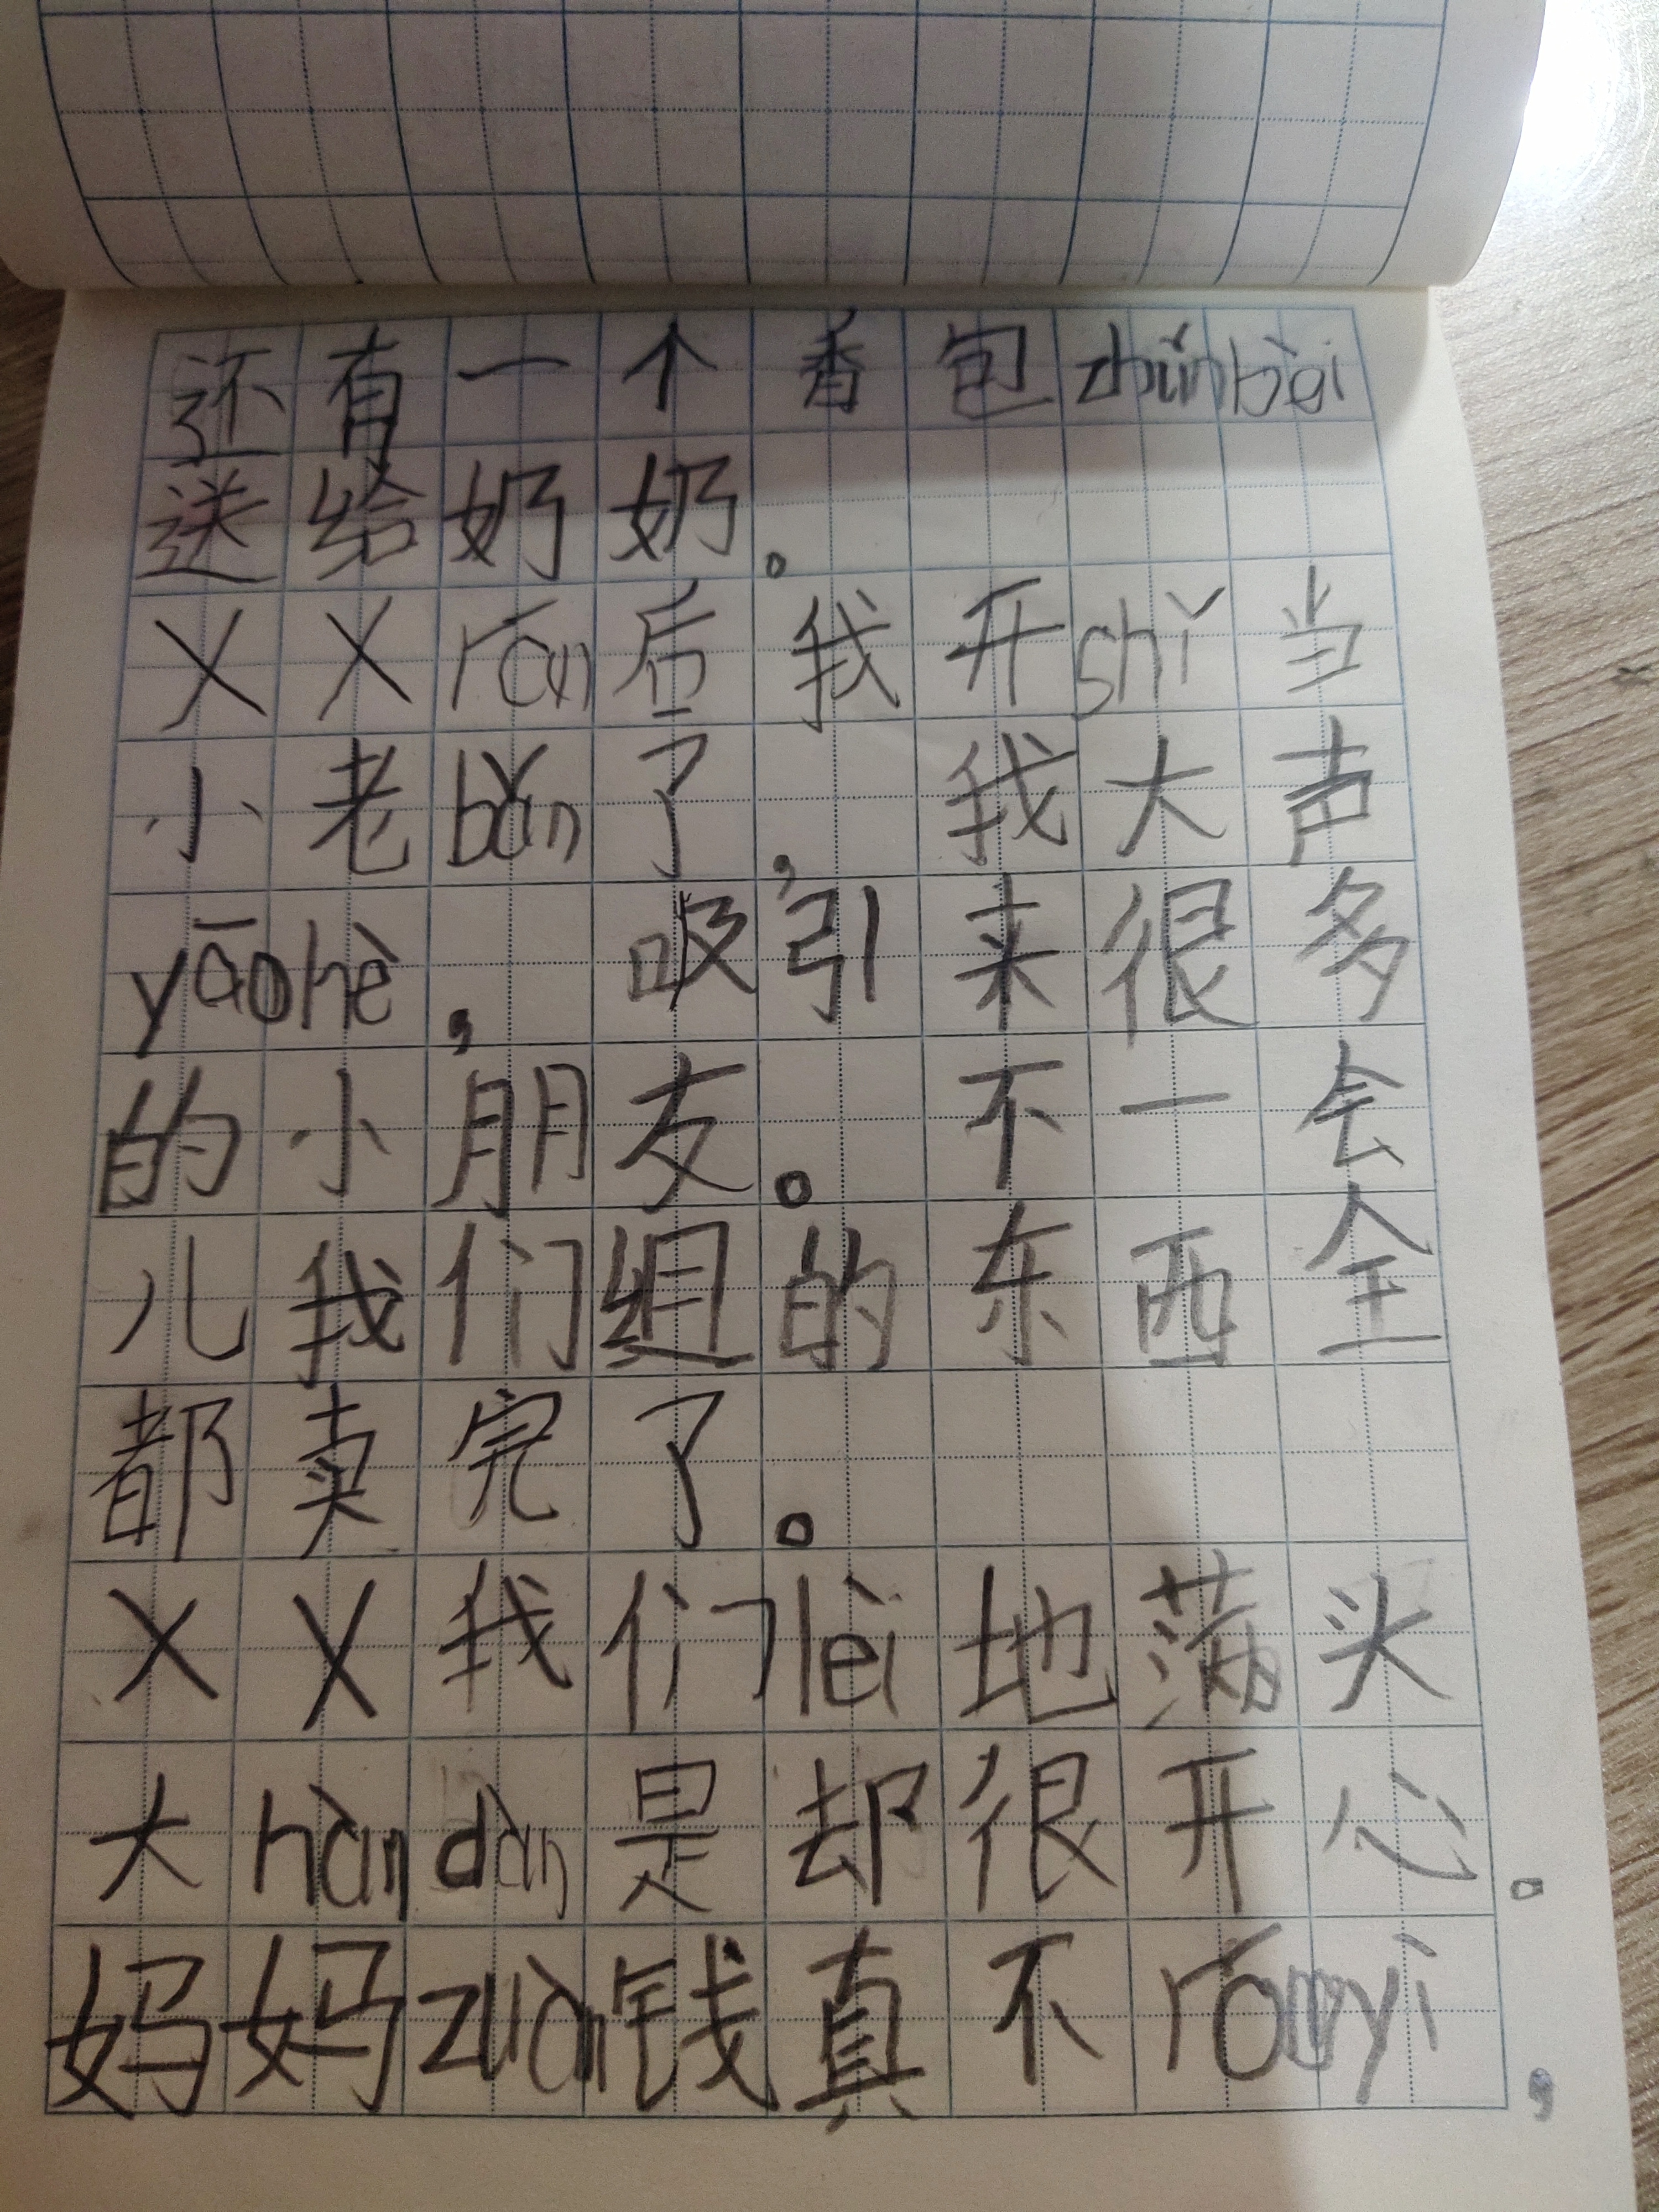 还有一个香包zhǔnbèi
送给奶奶。
XXrán后我开shǐ当
小老bǎn了,我大声
yāohè,吸引来很多
的小朋友。不一会
儿我们组的东西全
都卖完了。
XX我们lèi地满头
大hàndàn是却很开心。
妈妈zuàn钱真不róngyì,